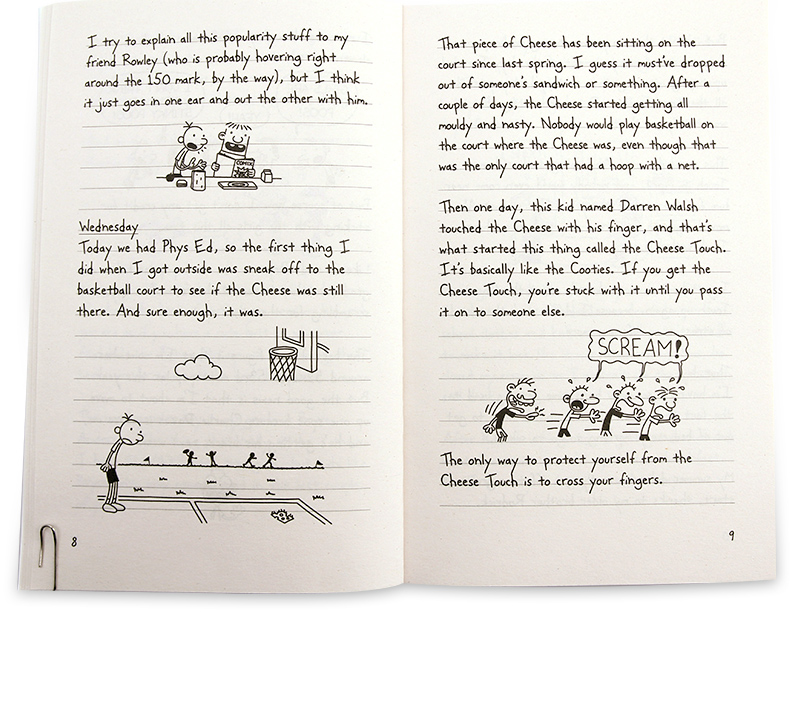 I try to explain all this popularity stuff to my
friend Rowley (who is probably hovering right
around the 150 mark, by the way), but I think
it just goes in one ear and out the other with him.
COMIX
Wednesday
Today we had Phys Ed, so the first thing I
did when I got outside was sneak off to the
basketball court to see if the Cheese was still
there. And sure enough, it was.
8
That piece of Cheese has been sitting on the
court since last spring. I guess it must've dropped
out of someone's sandwich or something. After a
couple of days, the Cheese started getting all
mouldy and nasty. Nobody would play basketball on
the court where the Cheese was, even though that
was the only court that had a hoop with a net.
Then one day, this kid named Darren Walsh
touched the Cheese with his finger, and that's
what started this thing called the Cheese Touch.
It's basically like the Cooties. If you get the
Cheese Touch, you're stuck with it until you pass
it on to someone else.
SCREAM!
The only way to protect yourself from the
Cheese Touch is to cross your fingers.
9